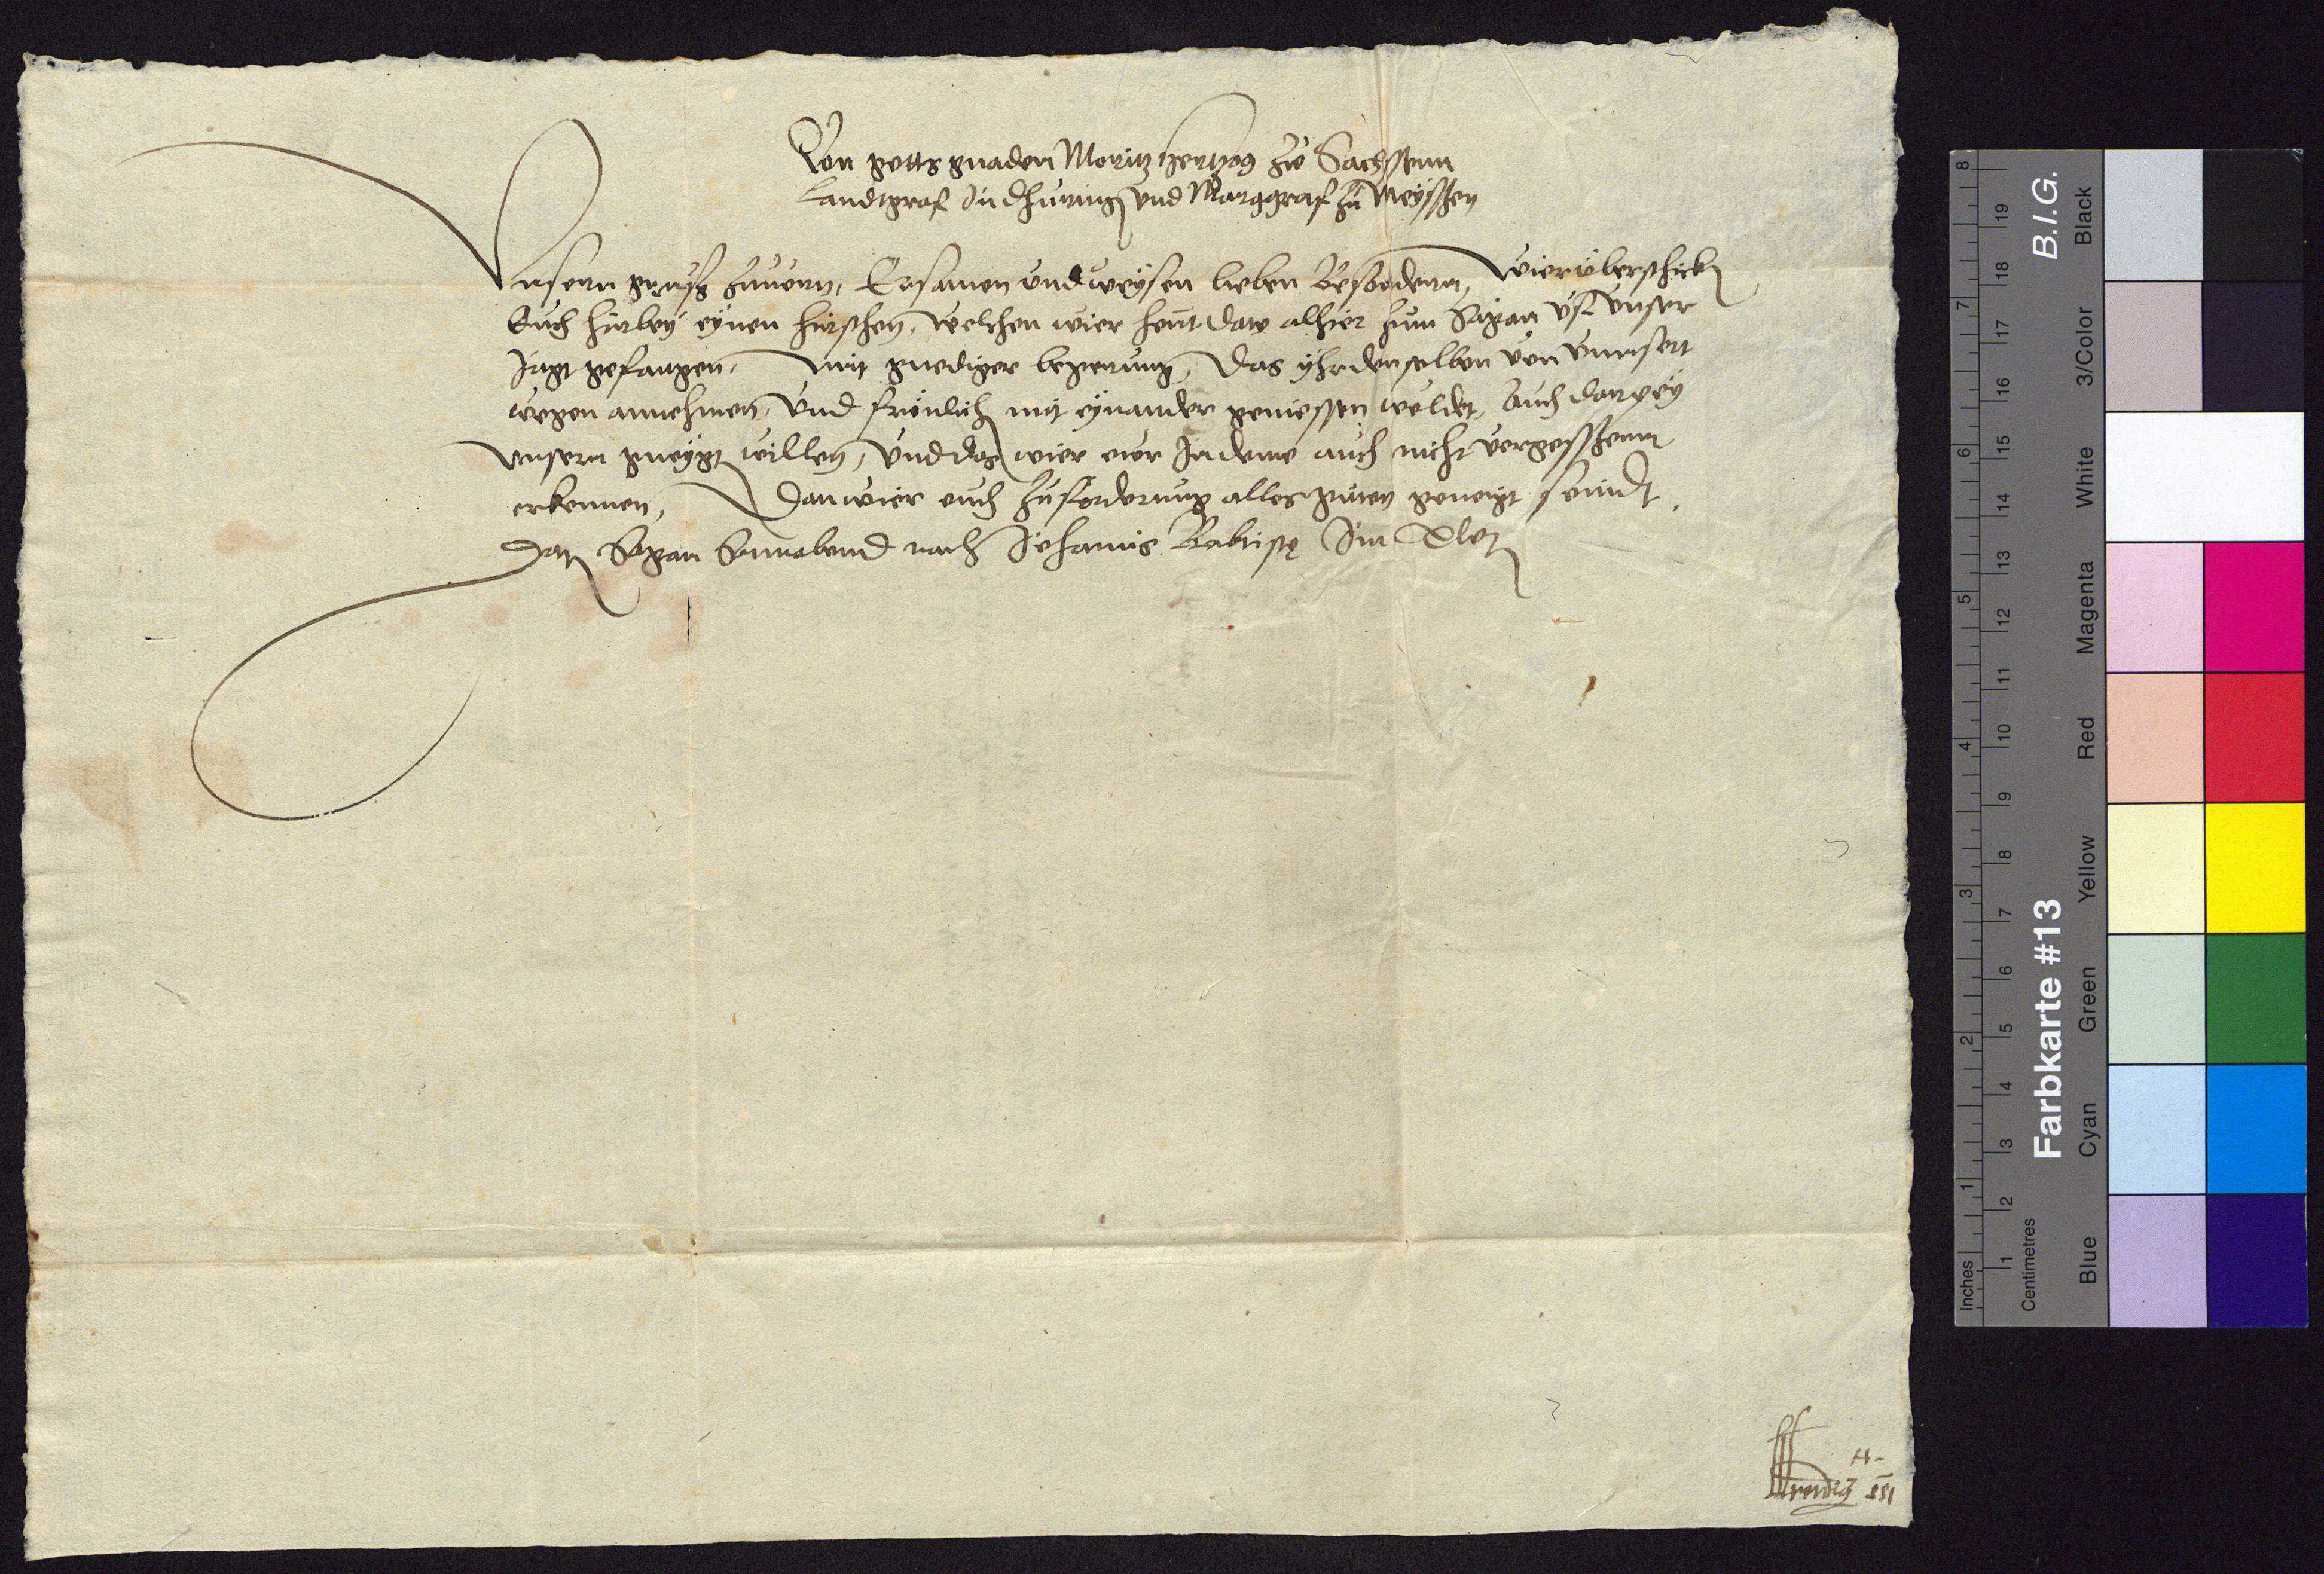 Von gotts gnaden Moritz Hertzog zw Sachssenn
Landtgraf In dhuringen und Marggraf zu Meyssen
Vnsern gruß zuuorn, Ersamen vnd weysen lieben Besondernn, Wier vberschicken
Euch hirbey eynen hirschen, welchen wier heut dato alhier zum Sagan vf vnser
Jagt gefangen, mit gnediger begerung, Das yhr denselben von vnnsert
wegen annehmen, vnd frönlich mit eynander geniessen woldet, Auch darpey
vnsern gneygt willen, vnd das wier ewr Indeme auch nicht vergessenn
erkennen, Dan wier euch zuforderung alles guten geneigt seindt.
Dat Sagan Sonnabend nach Johannis Babtistę Im
B.I.G.
Farbkarte #13
Inches 1 2 3 4 5 6 7 8
Centimetres 1 2 3 4 5 6 7 8 9 10 11 12 13 14 15 16 17 18 19
Blue Cyan Green Yellow Red Magenta White 3/Color Black